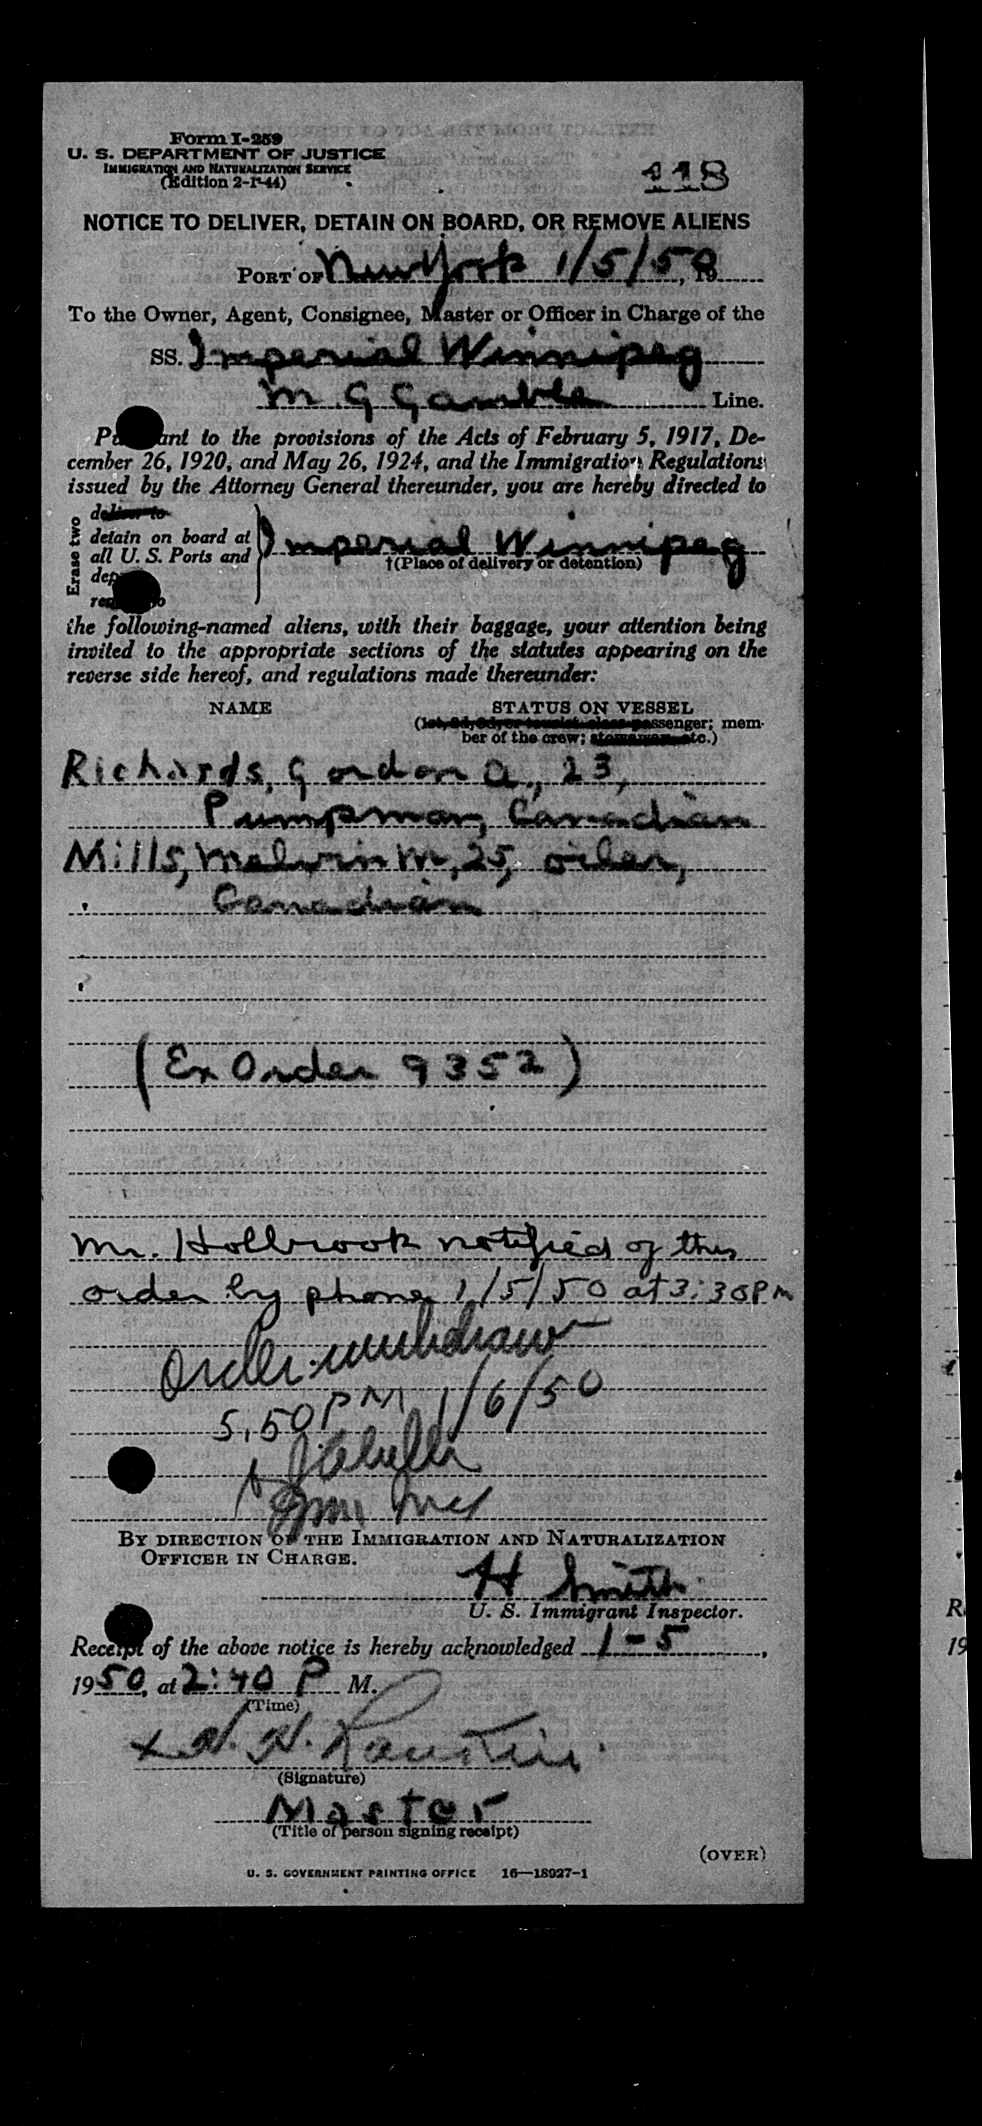 Form I-259
U. S. DEPARTMENT OF JUSTICE
IMMIGRATION AND NATURALIZATION SERVICE
(Edition 2-1-44)
118
NOTICE TO DELIVER, DETAIN ON BOARD, OR REMOVE ALIENS
PORT OF New York 1/5/50, 19
To the Owner, Agent, Consignee, Master or Officer in Charge of the
SS. Imperial Winnipeg
M. G Gamble Line.
Pursuant to the provisions of the Acts of February 5, 1917, De-
cember 26, 1920, and May 26, 1924, and the Immigration Regulations
issued by the Attorney General thereunder, you are hereby directed to
Erase two
deliver to
detain on board at
all U. S. Ports and
Imperial Winnipeg
†(Place of delivery or detention)
the following-named aliens, with their baggage, your attention being
invited to the appropriate sections of the statutes appearing on the
reverse side hereof, and regulations made thereunder:
NAME STATUS ON VESSEL
(1st, 2d, 3d, or tourist class passenger; mem-
ber of the crew; stowaway, etc.)
Richards, Gordon A., 23,
Pumpman, Canadian
Mills, Melvin M, 25, oiler,
Canadian
(Ex Order 9352)
Mr. Holbrook notified of this
order by phone 1/5/50 at 3:30PM
Order withdrawn
5,50 PM 1/6/50
BY DIRECTION OF THE IMMIGRATION AND NATURALIZATION
OFFICER IN CHARGE.
H Smith
U. S. Immigrant Inspector.
Receipt of the above notice is hereby acknowledged 1-5,
1950, at 2:40 P M.
(Time)
(Signature)
Master
(Title of person signing receipt)
(OVER)
U. S. GOVERNMENT PRINTING OFFICE 16—18927-1
R
19